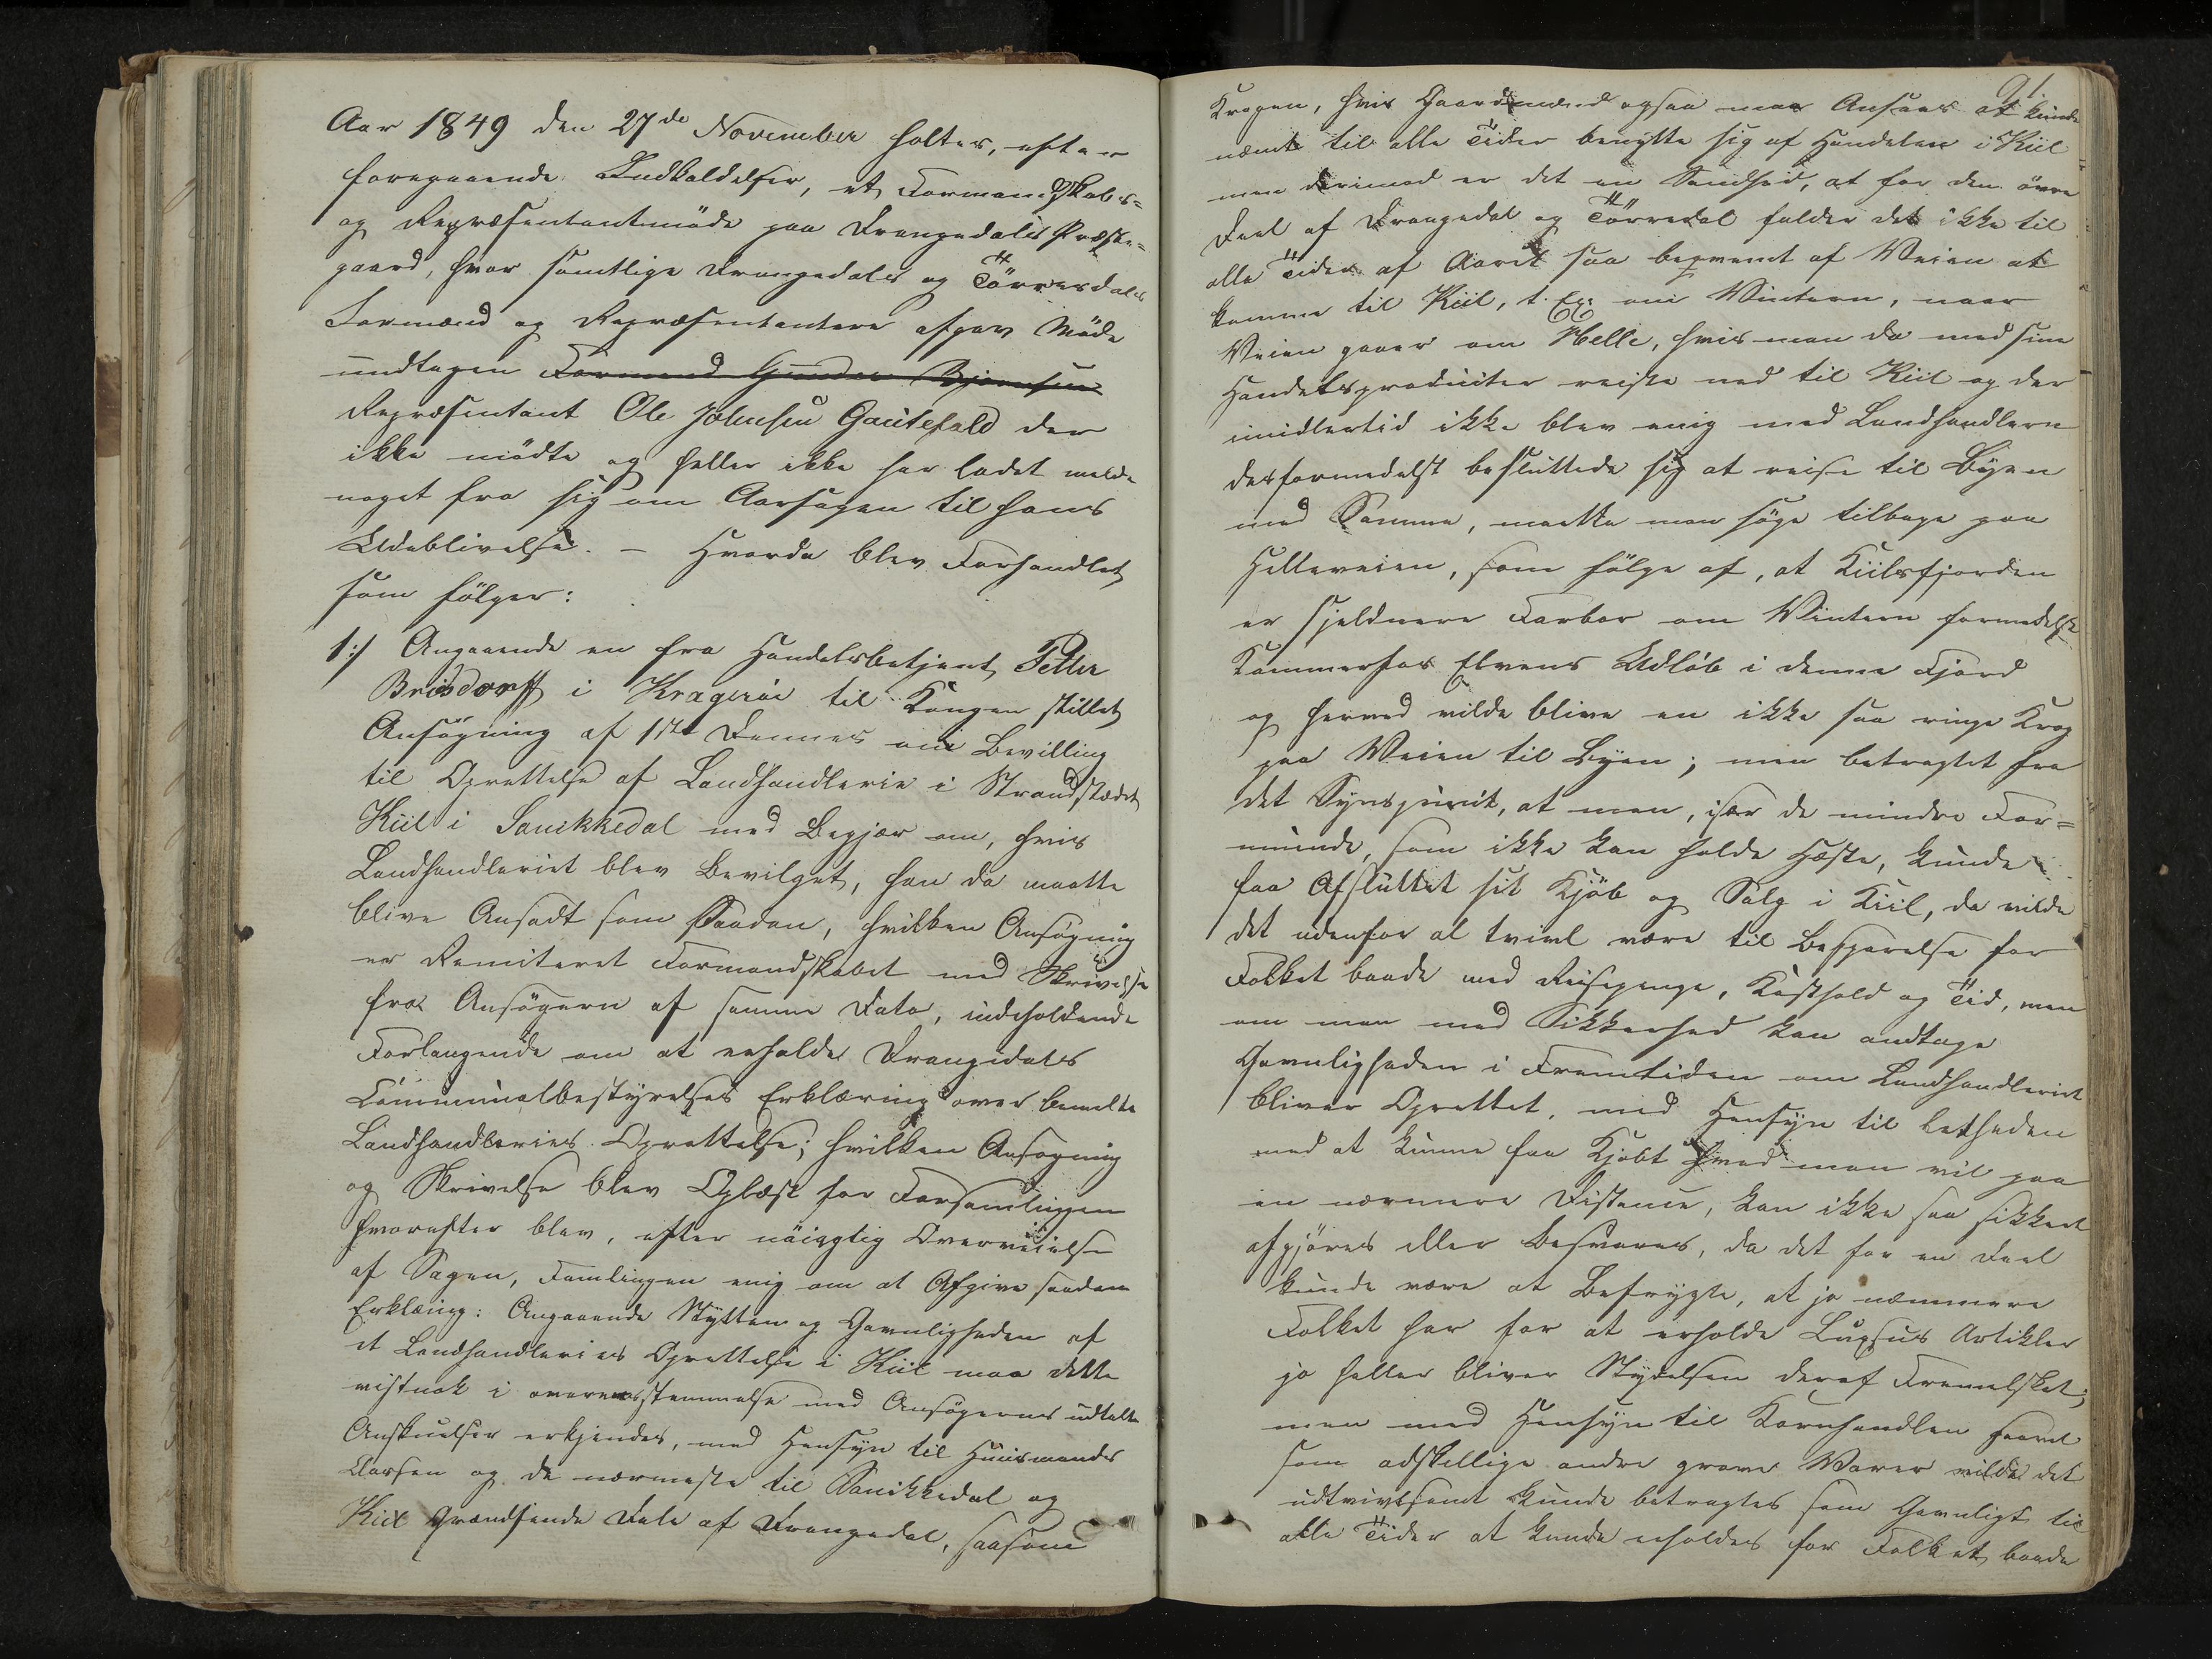 Aar 1849 den 27de November holtes, efter
foregaaende Indkaldelser, et Formandskabs=
og Repræsentantmöde paa Drangedals Præste=
gaard, hvor samtlige Drangedals og Törresdals
Formænd og Repræsentantere afgav Möde
undtagen Formand Gunder Bjørnsen
Repræsentant Ole Johnsen Gautefald der
ikke mödte og heller ikke har ladet melde
noget fra sig om Aarsagen til hans
Udeblivelse. – Hvorda blev Forhandlet
som fölger:
1:/ Angaaende en fra Handelsbetjent Petter
Brisdorff i Krageröe til Kongen stillet
Ansögning af 1ste Dennes om Bevilling
til Oprettelse af Landhandlerie i Strandstædet
Kiil i Sanikkedal med Begjær om, hvis
Landhandleriet blev Bevilget, han da maatte
blive Ansadt som Saadan, hvilken Ansögning
er Remiteret Formandskabet med Skrivelse
fra Ansögeren af samme Dato, indeholdende
Forlangende om at erholde Drangedals
Communalbestyrelses Erklæring over bemelte
Landhandleries Oprettelse; hvilken Ansögning
og Skrivelse blev Oplæst for Forsamlingen
hvorefter blev, efter nöiagtig Overveielse
af Sagen, Samlingen enig om at Afgive saadan
Erklæing: Angaaende Nytten og Gavnligheden af
et Landhandleries Oprettelse i Kiil maa dette
vistnok i overensstemmelse med Ansögerens udtalte
Anskuelser erkjendes, med Hensyn til Huusmands
Classen og de nærmeste til Sanikkedal og
Kiil Grændsende Dele af Drangedal, saasom
91.
Kragen, hvis Gaardmænd ogsaa maa Ansees at kunde
nemt til alle Tider benytte sig af Handelen i Kiil
men derimod er det en Sandhed, at for den övre
Deel af Drangedal og Törredal falder det ikke til
alle Tider af Aaret saa beqvemt af Veien at
komme til Kiil, t. Ex. om Vintern, naar
Veien gaaer om Helle, hvis man da med sine
Handelsproducter reiste ned til Kiil og der
imidlertid ikke blev enig med Landhandlern
desformedelst besluttede sig at reise til Byen
med Samme, maatte man söge tilbage paa
Helleveien, som fölge af, at Kiilsfjorden
er sjeldnere Farbar om Vintern formedelst
Kammerfos Elvens Udlöb i denne Fjord
og herved vilde blive en ikke saa ringe Krog
paa Veien til Byen; men betragtet fra
det Synspunct, at man, især de mindre For=
muende, som ikke kan holde Hæste, kunde
faa Afsluttet sit Kjöb og Salg i Kiil, da vilde
det udenfor al tvivl være til Besparelse for
Folket baade med Reisepenge, Kosthold og Tid, men
om man med Sikkerhed kan andtage
Gavnligheden i Fremtiden om Landhandleriet
bliver Oprettet, med Hensyn til Letheden
med at kunne faa Kjöbt hvad man vil paa
en nærmere Distance, kan ikke saa sikkert
afgjöres eller Besvares, da det for en Deel
kunde være at Befrygte, at jo nemmere
Folket har for at erholde Luxsus Artikler
jo heller bliver Nydelsen deraf Fremelsket;
men med Hensyn til Kornhandlen saavel
som adskellige andre grove Varer vilde det
udtvivlsomt kunde betragtes som Gavnligt til
alle Tider at kunde erholdes for Folket baade